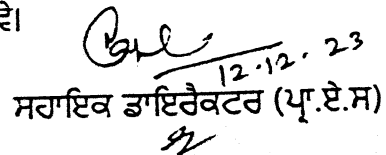 ਵੇ।
12.12.23
ਸਹਾਇਕ ਡਾਇਰੈਕਟਰ (ਪ੍ਰਾ.ਏ.ਸ)